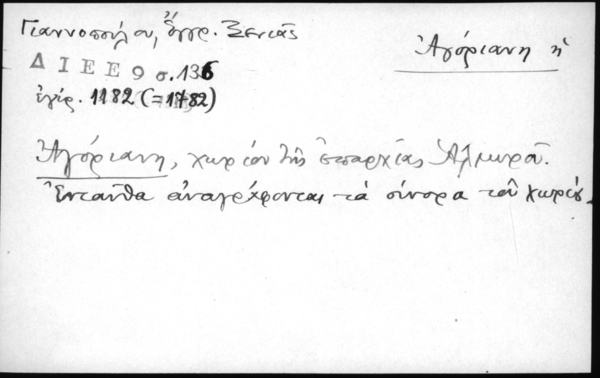 Γιαννοπούλου, ἔγγρ. Ξενιᾶς
Ἀγόριανη ἡ
ΔΙΕΕ 9 σ. 136
ἐγίρ. 1182 (=1782)
Ἀγόριανη, χωρίον τῆς ἐπαρχίας Ἁλμυροῦ.
Ἐνταῦθα ἀναγράφονται τὰ σύνορα τοῦ χωρίου.